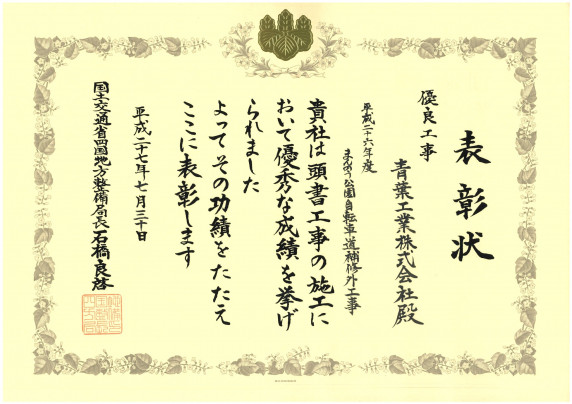 表彰状
優良工事
青葉工業株式会社殿
平成二十六年度
まんのう公園自転車道補修外工事
貴社は頭書工事の施工に
おいて優秀な成績を挙げ
られました
よってその功績をたたえ
ここに表彰します
平成二十七年七月三十日
国土交通省四国地方整備局長 石橋良啓